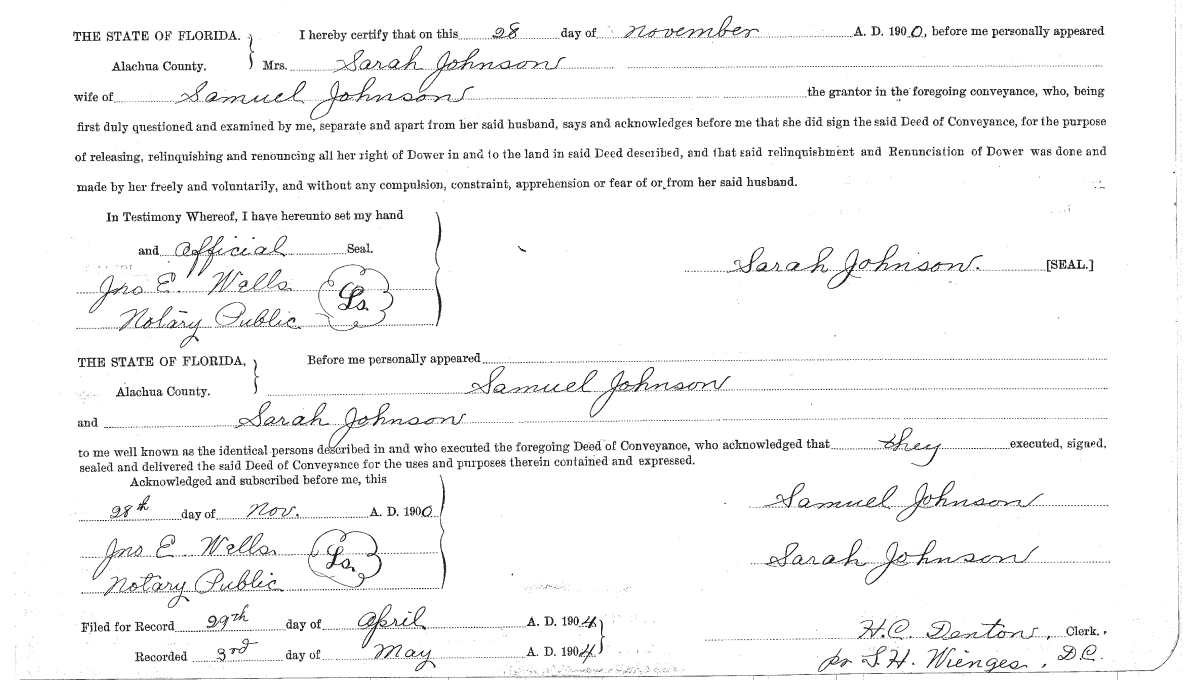 THE STATE OF FLORIDA. I hereby certify that on this 28 day of november A. D. 1900, before me personally appeared
Alachua County. Mrs. Sarah Johnson
wife of Samuel Johnson the grantor in the foregoing conveyance, who, being
first duly questioned and examined by me, separate and apart from her said husband, says and acknowledges before me that she did sign the said Deed of Conveyance, for the purpose
of releasing, relinquishing and renouncing all her right of Dower in and to the land in said Deed described, and that said relinquishment and Renunciation of Dower was done and
made by her freely and voluntarily, and without any compulsion, constraint, apprehension or fear of or from her said husband.
In Testimony Whereof, I have hereunto set my hand
and official Seal.
Sarah Johnson. [SEAL.]
Jno E. Wells
Ls.
Notary Public
THE STATE OF FLORIDA, Before me personally appeared
Alachua County. Samuel Johnson
and Sarah Johnson
to me well known as the identical persons described in and who executed the foregoing Deed of Conveyance, who acknowledged that they executed, signed,
sealed and delivered the said Deed of Conveyance for the uses and purposes therein contained and expressed.
Acknowledged and subscribed before me, this
28th day of Nov. A. D. 1900
Samuel Johnson
Jno E. Wells
Ls.
Sarah Johnson
Notary Public
Filed for Record 29th day of April A. D. 1904
H.C. Denton, Clerk.
Recorded 3rd day of May A. D. 1904
pr S.H. Wienges, D.C.